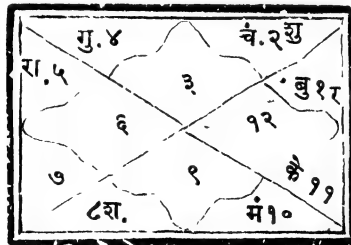 गु.४ चं.२शु
रा.५ ३ बु१र
६ १२
७ ९ कै११
८श. मं१०